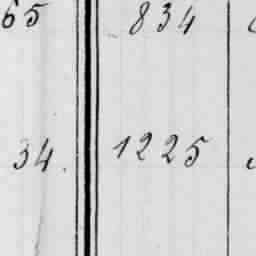 65 834
34. 1225